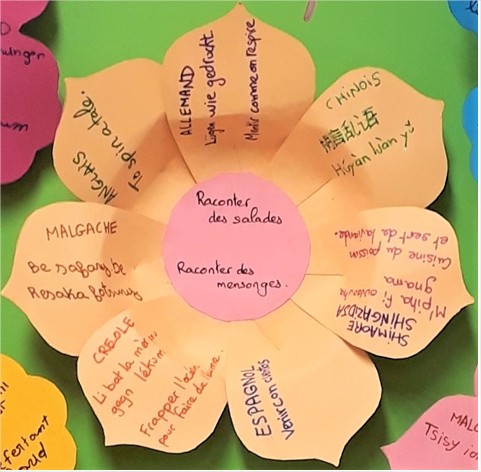 Raconter
des salades
Raconter des
mensonges.
ALLEMAND
Lügen wie gedruckt
Mentir comme on respire
CHINOIS
胡言乱语
Húyán luàn yǔ
SHIMAORE
SHINGAZIDJA
M'piha. Fi
gnama.
Cuisine du poisson
et sert de la viande.
ESPAGNOL
Venir con cuentos
CREOLE
Li bat la
gagn
Frapper l'
pour faire de
MALGACHE
Be safary be
Resaka fotsiny
ANGLAIS
To spin a tale.
MAL
Tsisy